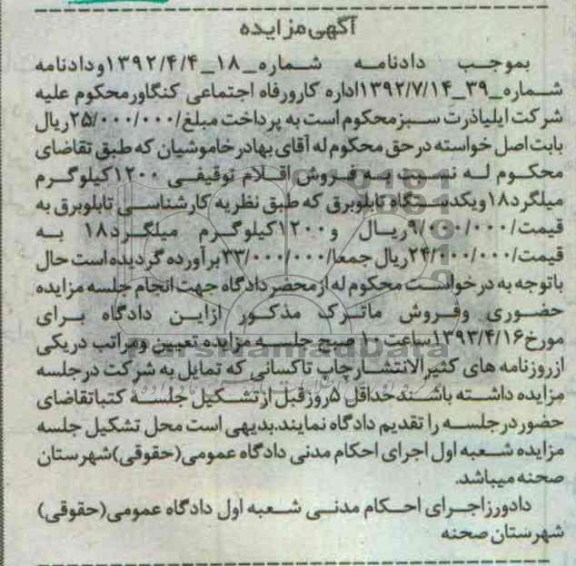 آگهی مزایده
بموجب دادنامه شماره_۱۸_۱۳۹۲/۴/۴ودادنامه
شماره_۳۹_۱۳۹۲/۷/۱۴اداره کارورفاه اجتماعی کنگاورمحکوم علیه
شرکت ایلیاذرت سبزمحکوم است به پرداخت مبلغ/۲۵/۰۰۰/۰۰۰ریال
بابت اصل خواسته درحق محکوم له آقای بهادرخاموشیان که طبق تقاضای
محکوم له نسبت به فروش اقلام توقیفی ۱۲۰۰کیلوگرم
میلگرد۱۸ویکدستگاه تابلوبرق که طبق نظریه کارشناسی تابلوبرق به
قیمت/۹/۰۰۰/۰۰۰ریال و۱۲۰۰کیلوگرم میلگرد۱۸ به
قیمت/۲۴/۰۰۰/۰۰۰ریال جمعا/۳۳/۰۰۰/۰۰۰برآورده گردیده است حال
باتوجه به درخواست محکوم له ازمحضردادگاه جهت انجام جلسه مزایده
حضوری وفروش ماترک مذکور ازاین دادگاه برای
مورخ۱۳۹۳/۴/۱۶ساعت۱۰صبح جلسه مزایده تعیین ومراتب دریکی
ازروزنامه های کثیرالانتشارچاپ تاکسانی که تمایل به شرکت درجلسه
مزایده داشته باشندحداقل ۵روزقبل ازتشکیل جلسه کتباتقاضای
حضوردرجلسه را تقدیم دادگاه نمایند.بدیهی است محل تشکیل جلسه
مزایده شعبه اول اجرای احکام مدنی دادگاه عمومی(حقوقی)شهرستان
صحنه میباشد.
دادورزاجرای احکام مدنی شعبه اول دادگاه عمومی(حقوقی)
شهرستان صحنه